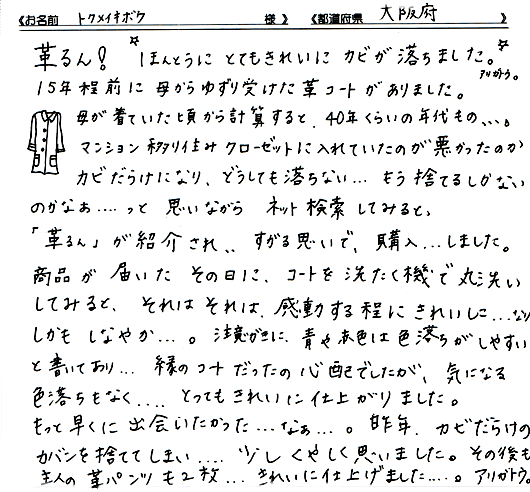 《お名前 トクメイキボウ 様》 《都道府県 大阪府 》
革るん! ☆ほんとうに とてもきれいに カビが 落ちました。☆
アリガトウ。
15年程前に 母からゆずり受けた 革コートがありました。
母が着ていた頃から計算すると、40年くらいの年代もの...。
マンション 移り住み クローゼットに入れていたのが 悪かったのか
カビだらけになり、どうしても落ちない... もう捨てるしかない
のかなぁ....っと 思いながら ネット検索してみると、
「革るん」が紹介され、、すがる思いで、購入...しました。
商品が 届いた その日に、コートを 洗たく機で丸洗い
してみると、それはそれは、感動する程にきれいに...なり
しかも しなやか...。注意がきに 青や赤色は色落ちがしやすい
と書いてあり... 緑のコートだったの 心配でしたが、気になる
色落ちもなく.... とってもきれいに仕上がりました。
もっと早くに 出会いたかった...なぁ...。昨年、カビだらけの
カバンを捨ててしまい.... 少しくやしく思いました。その後も
主人の 革パンツも2枚... きれいに仕上げました....。アリガトウ。